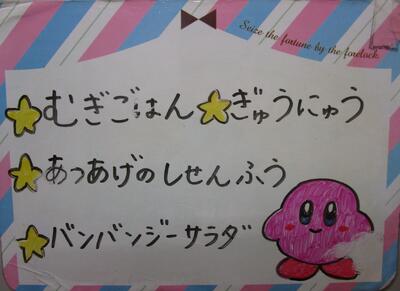 Seize the fortune by the forelock.
★むぎごはん ★ぎゅうにゅう
★あつあげのしせんふう
★バンバンジーサラダ